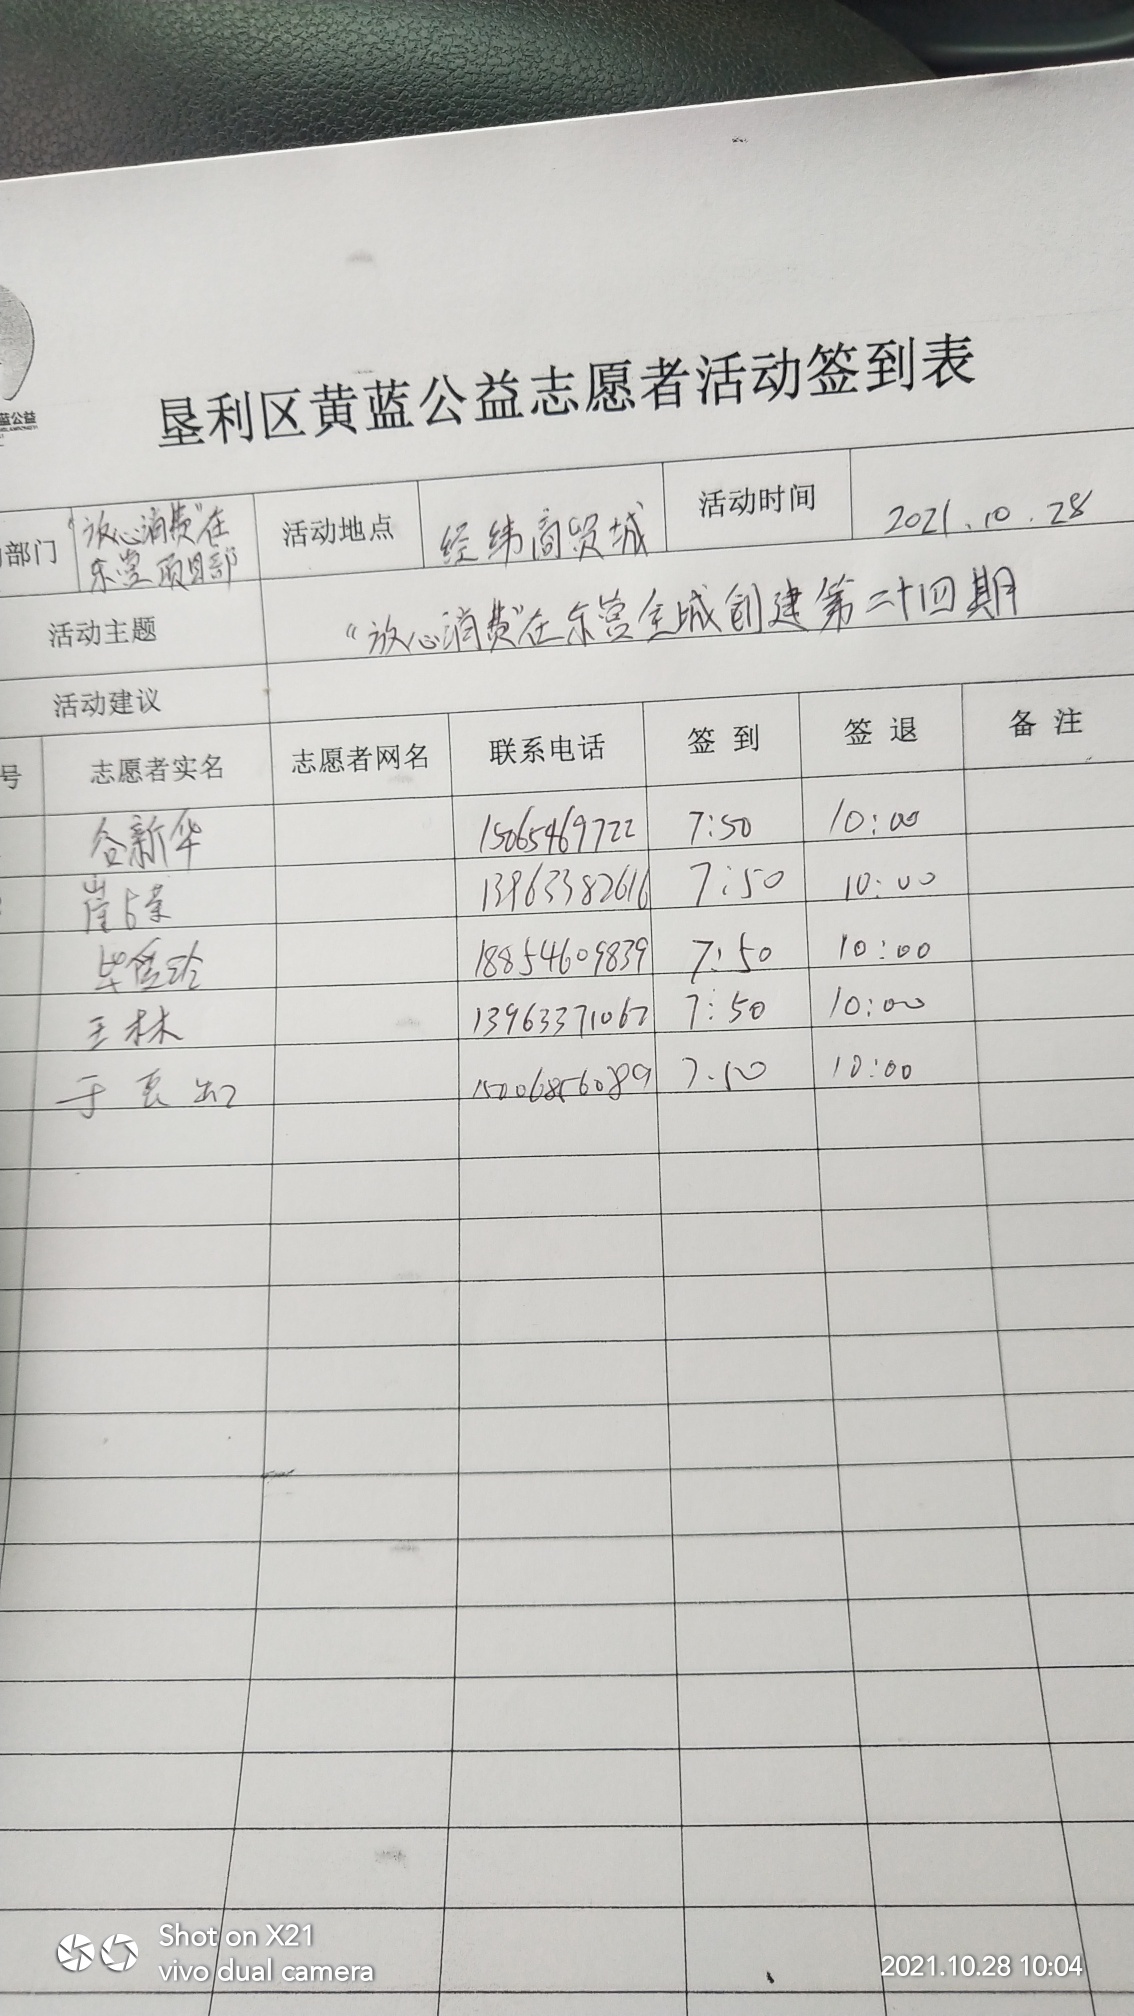 蓝公益
垦利区黄蓝公益志愿者活动签到表
部门 "放心消费"在 活动地点 经纬商贸城 活动时间 2021.10.28
东营项目部
活动主题 "放心消费"在东营全城创建第二十四期
活动建议
号 志愿者实名 志愿者网名 联系电话 签到 签退 备注
谷新华 15065469722 7:50 10:00
崔占荣 13963382616 7:50 10:00
毕 18854609839 7:50 10:00
王林 13963371067 7:50 10:00
于 15006856089 7:50 10:00
Shot on X21
vivo dual camera
2021.10.28 10:04